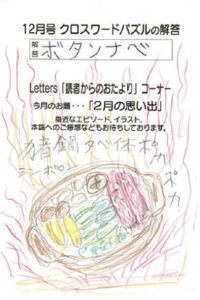 12月号 クロスワードパズルの解答
解答 ボタンナベ
Letters「読者からのおたより」コーナー
今月のお題・・・「2月の思い出」
身近なエピソード、イラスト、
本誌へのご感想などもお待ちしております。
猪鍋 タベ体 ポカ
ポカ